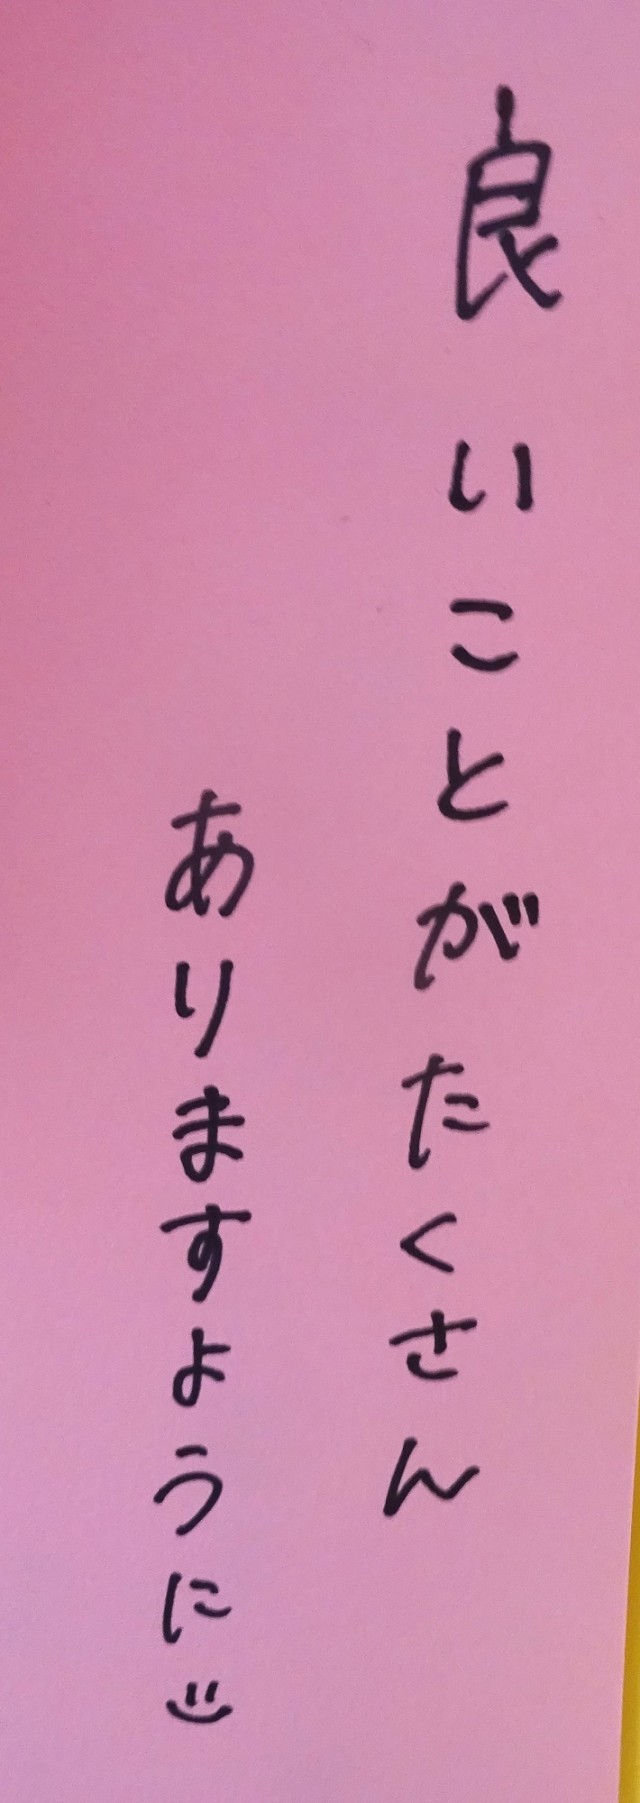 良いことがたくさん
ありますように